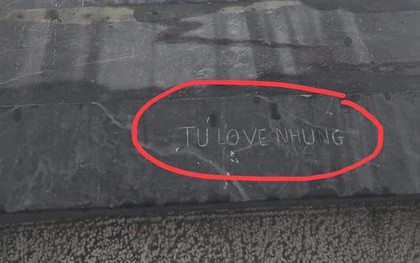 TÚ LOVE NHUNG